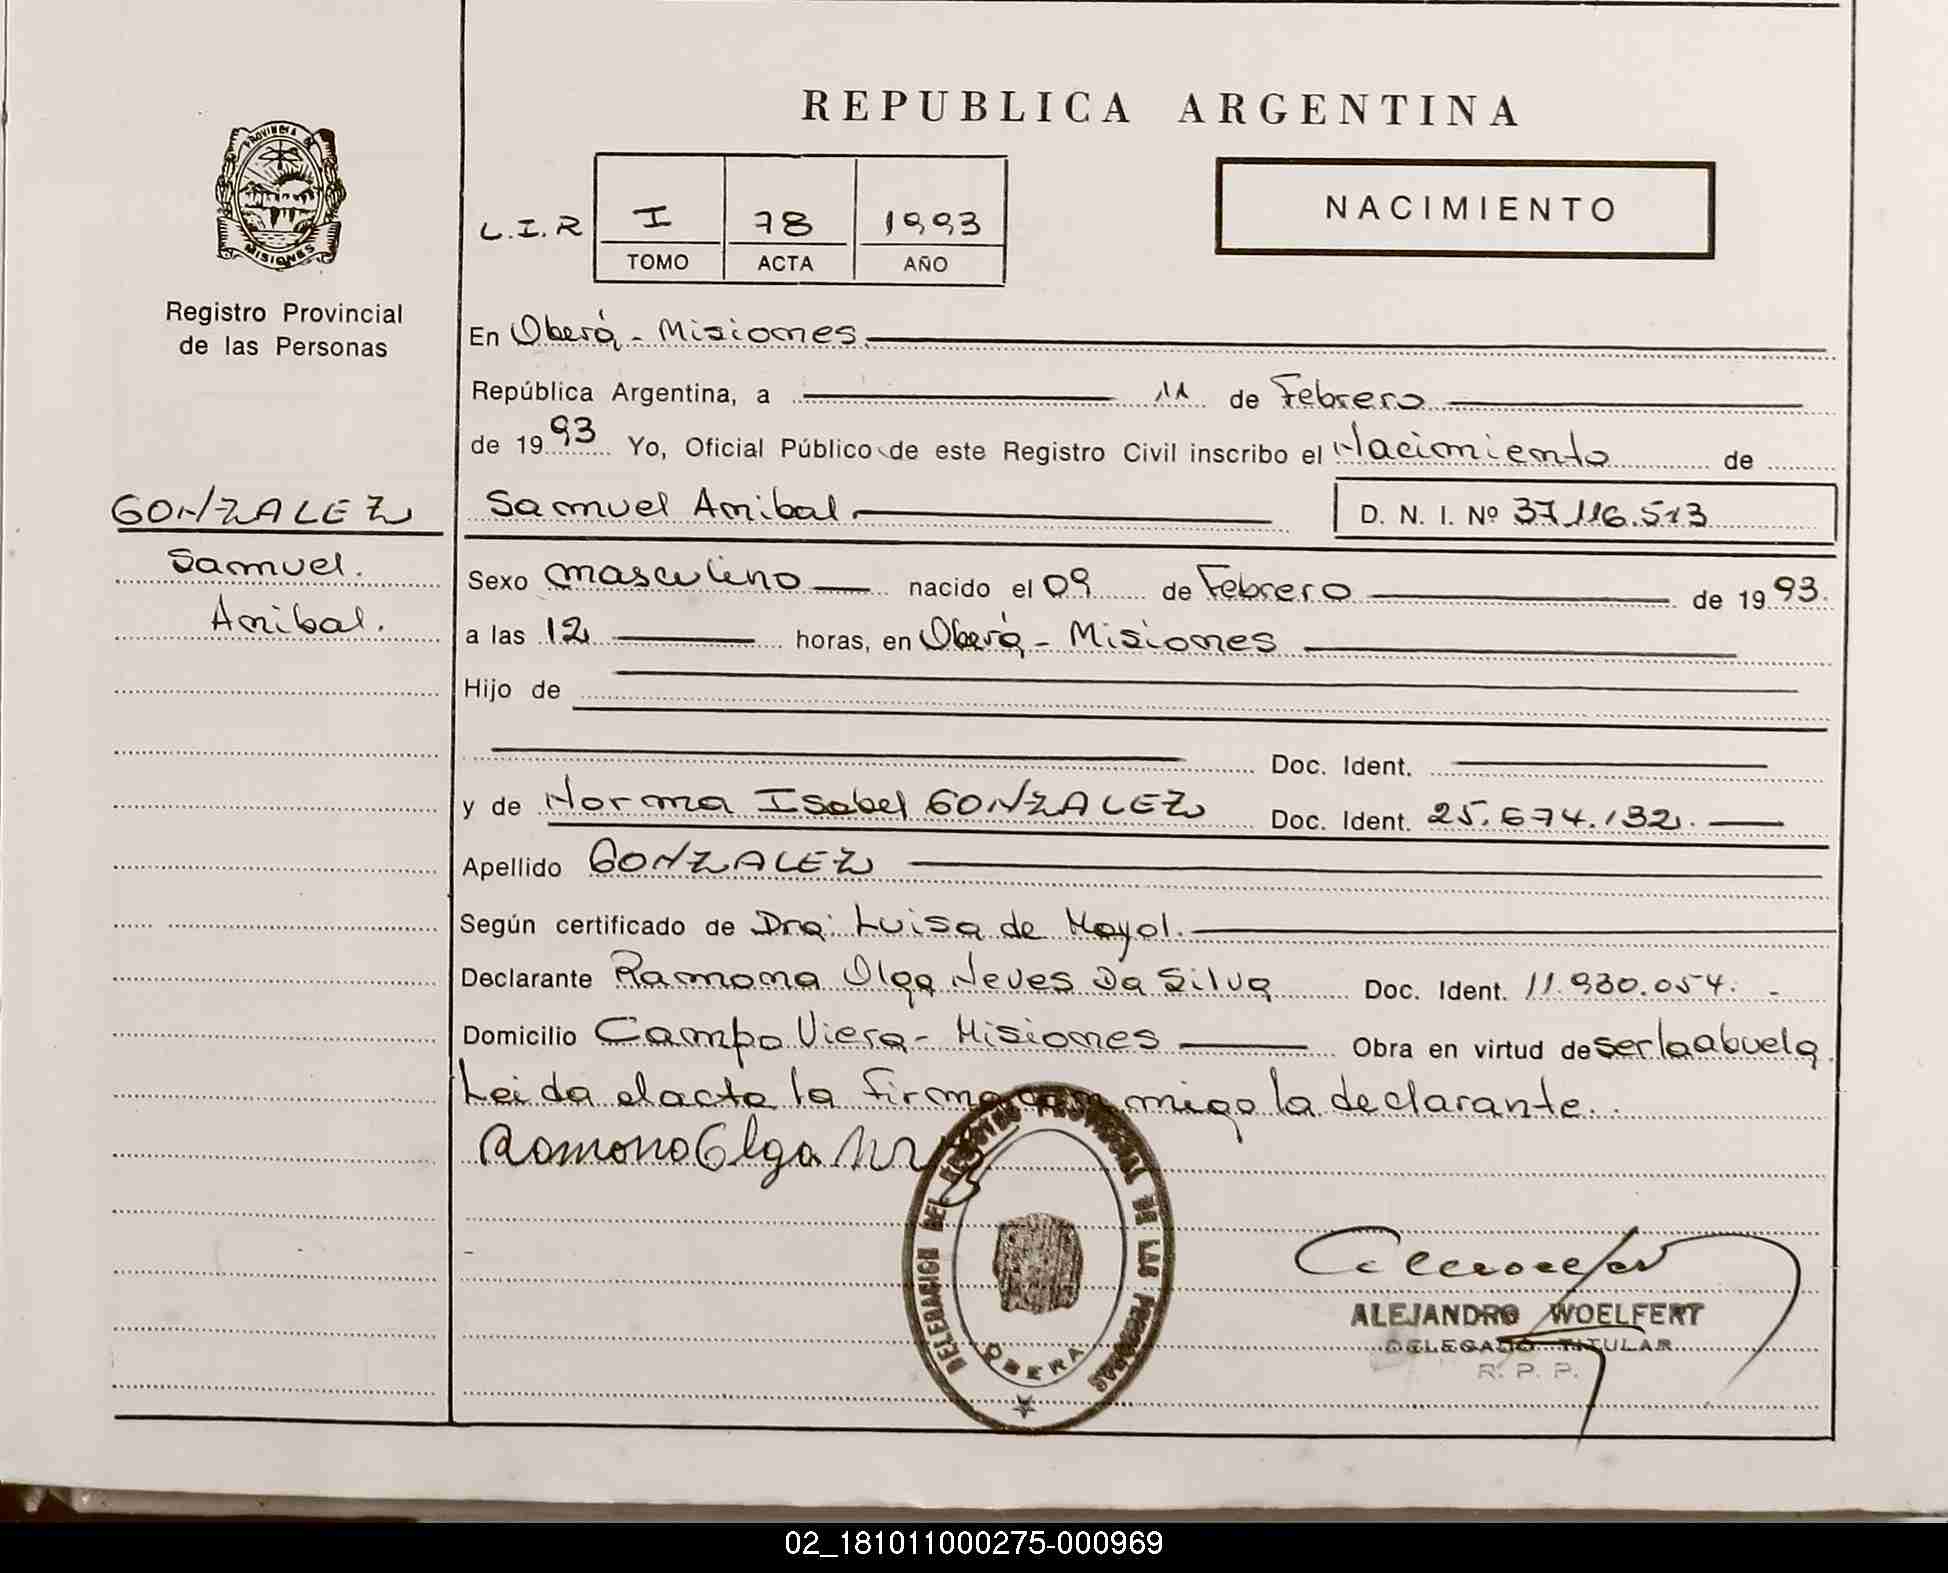 REPUBLICA ARGENTINA
PROVINCIA DE
MISIONES
Registro Provincial
de las Personas
L.I.R I 78 1993
TOMO ACTA AÑO
NACIMIENTO
En Oberá - Misiones
República Argentina, a 11 de Febrero
de 1993 Yo, Oficial Público de este Registro Civil inscribo el Nacimiento de
GONZALEZ
Samuel.
Anibal.
Samuel Anibal D. N. I. Nº 37.116.513
Sexo masculino nacido el 09 de Febrero de 1993.
a las 12 horas, en Oberá - Misiones
Hijo de
Doc. Ident.
y de Norma Isabel GONZALEZ Doc. Ident. 25.674.132.
Apellido GONZALEZ
Según certificado de Dra: Luisa de Moyol.
Declarante Ramona Olga Neves Da Silva Doc. Ident. 11.930.054. -
Domicilio Campo Viera - Misiones Obra en virtud de ser la abuela.
Leida el acta la firma con migo la declarante.
Ramona Olga
DELEGACION DEL REGISTRO PROVINCIAL DE LAS PERSONAS
OBERA
ALEJANDRO WOELFERT
DELEGADO TITULAR
R. P. P.
02_181011000275-000969